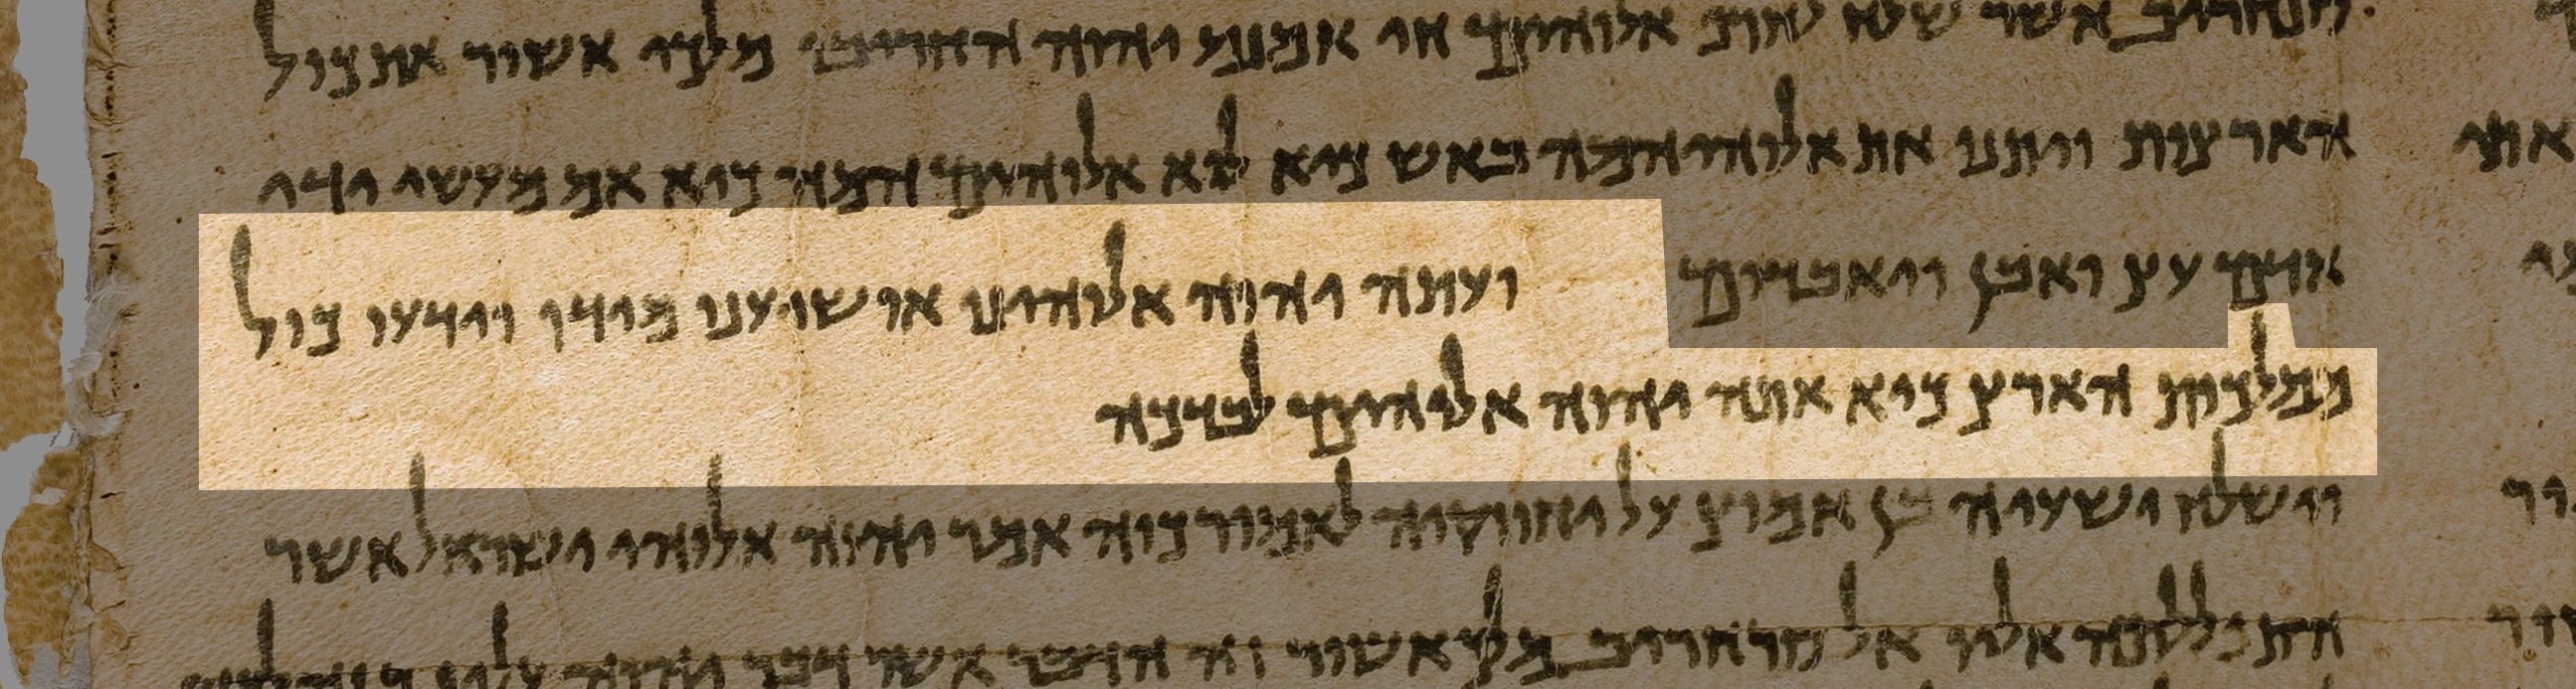 סנחריב אשר שלח לחרף אלוהים חי אמנם יהוה החריבו מלכי אשור את כול
הארצות ויתנו את אלוהיהמה באש כיא לוא אלוהים המה כיא אם מעשי ידי
אדם עץ ואבן ויאבדום ועתה יהוה אלוהינו הושיענו מידו וידעו כול
ממלכות הארץ כיא אתה יהוה אלוהים לבדכה
וישלח ישעיה בן אמוץ על יחוזקיה לאמור כוה אמר יהוה אלוהי ישראל אשר
התפללתה אליו אל סנחריב מלך אשור זה הדבר אשר דבר יהוה עליו